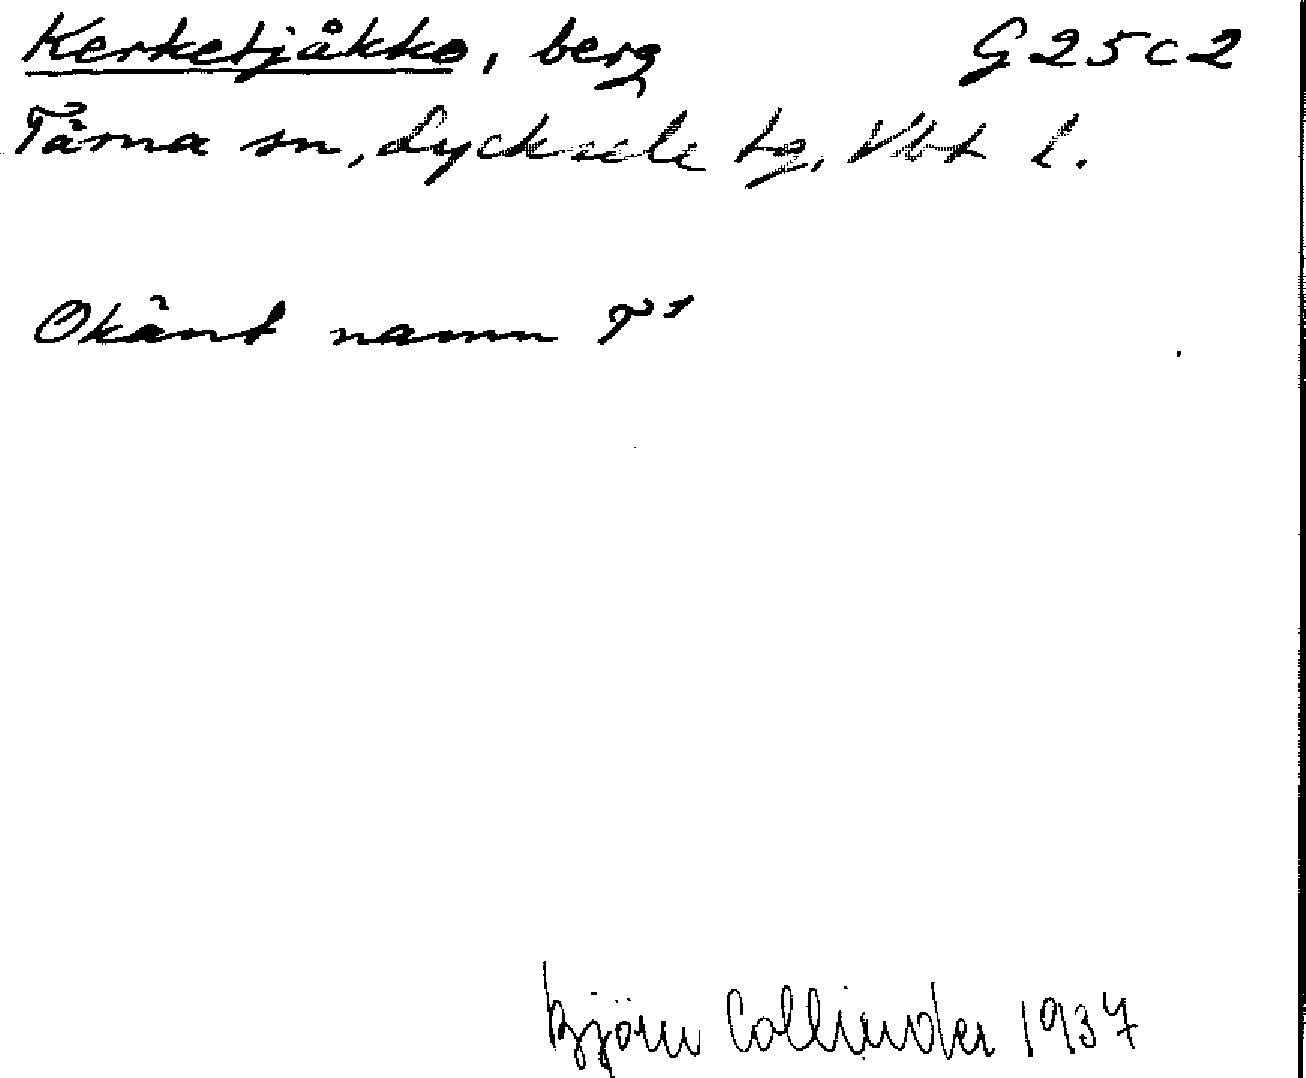 Kerketjåkko, berg G25c2
Tärna sn, Lycksele tg, Vbt l.
Okänt namn T¹
Björn Collinder 1937